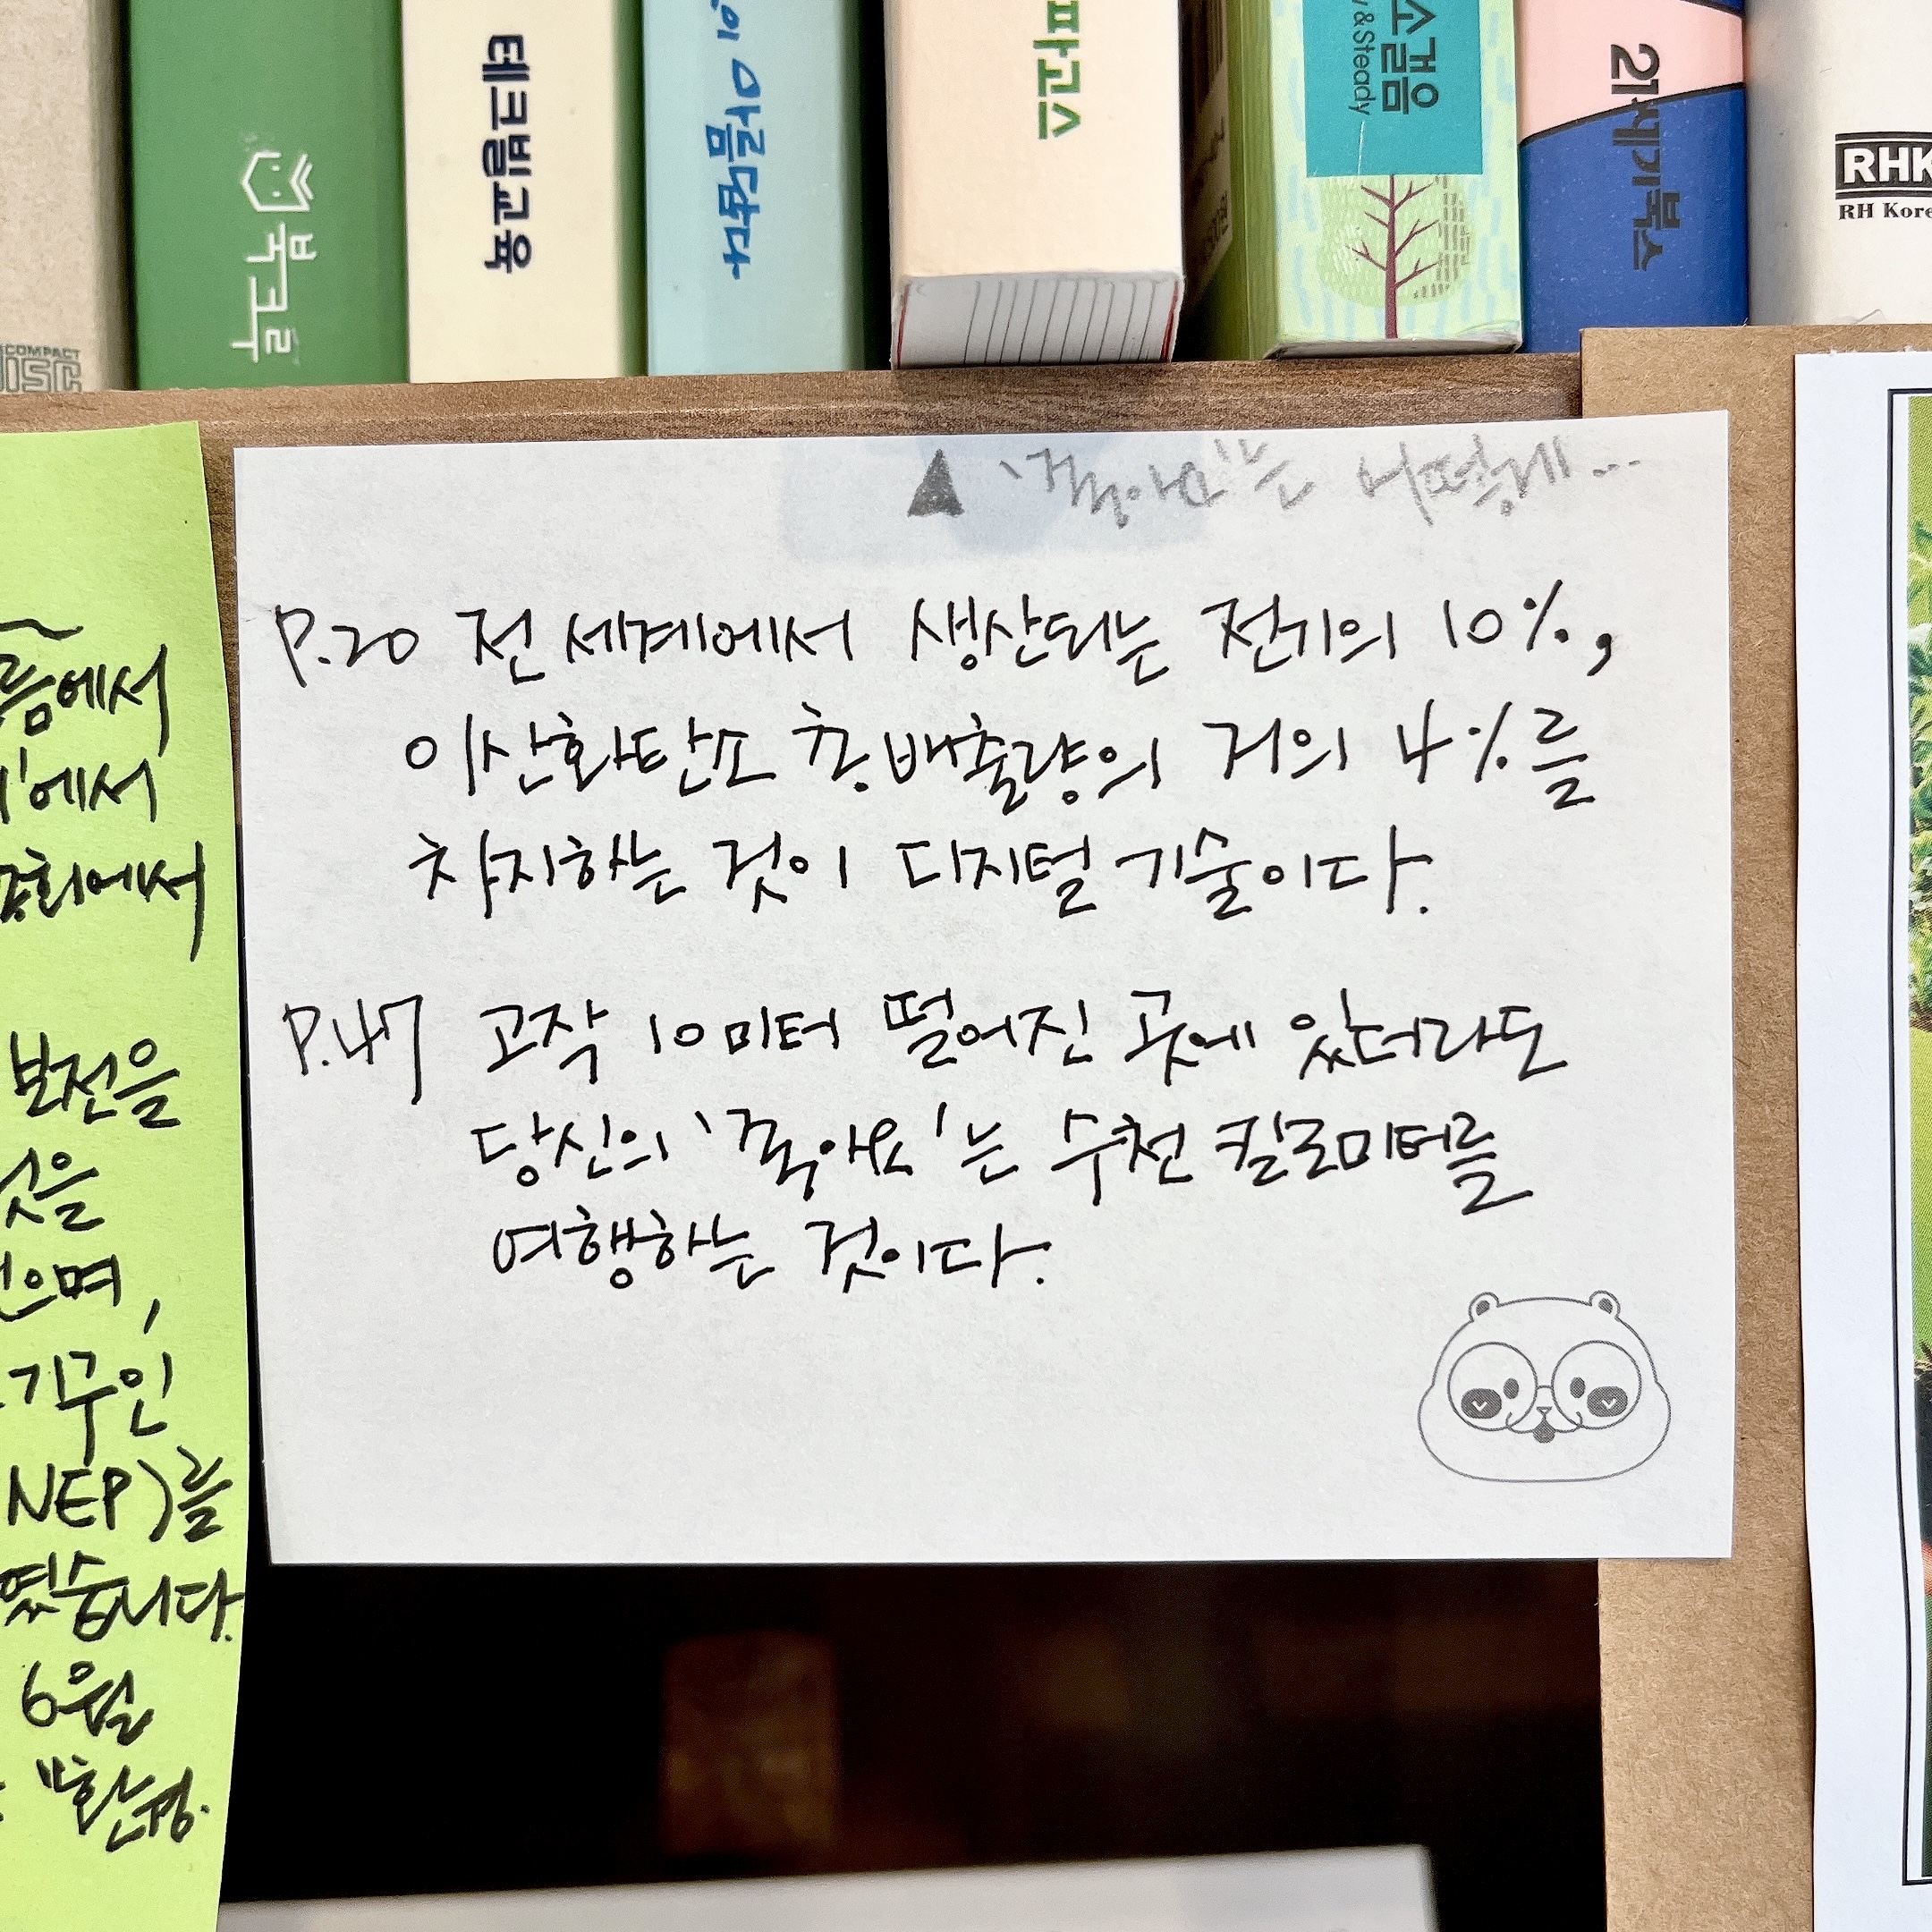 COMPACT
DISC
북크루
테크빌교육
아름답다
파고스
소걸음
& Steady
21세기북스
RHK
RH Kore
▲ '좋아요'는 어떻게...
P.20 전 세계에서 생산되는 전기의 10%,
이산화탄소 총배출량의 거의 4%를
차지하는 것이 디지털 기술이다.
P.47 고작 10미터 떨어진 곳에 있더라도
당신의 '좋아요'는 수천 킬로미터를
여행하는 것이다.
름에서
에서
총회에서
보전을
것을
으며,
기구인
NEP)를
였습니다.
6월
"환경.